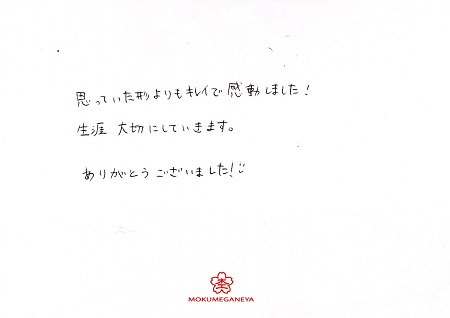 思っていた形よりもキレイで感動しました!
生涯 大切にしていきます。
ありがとうございました!
MOKUMEGANEYA